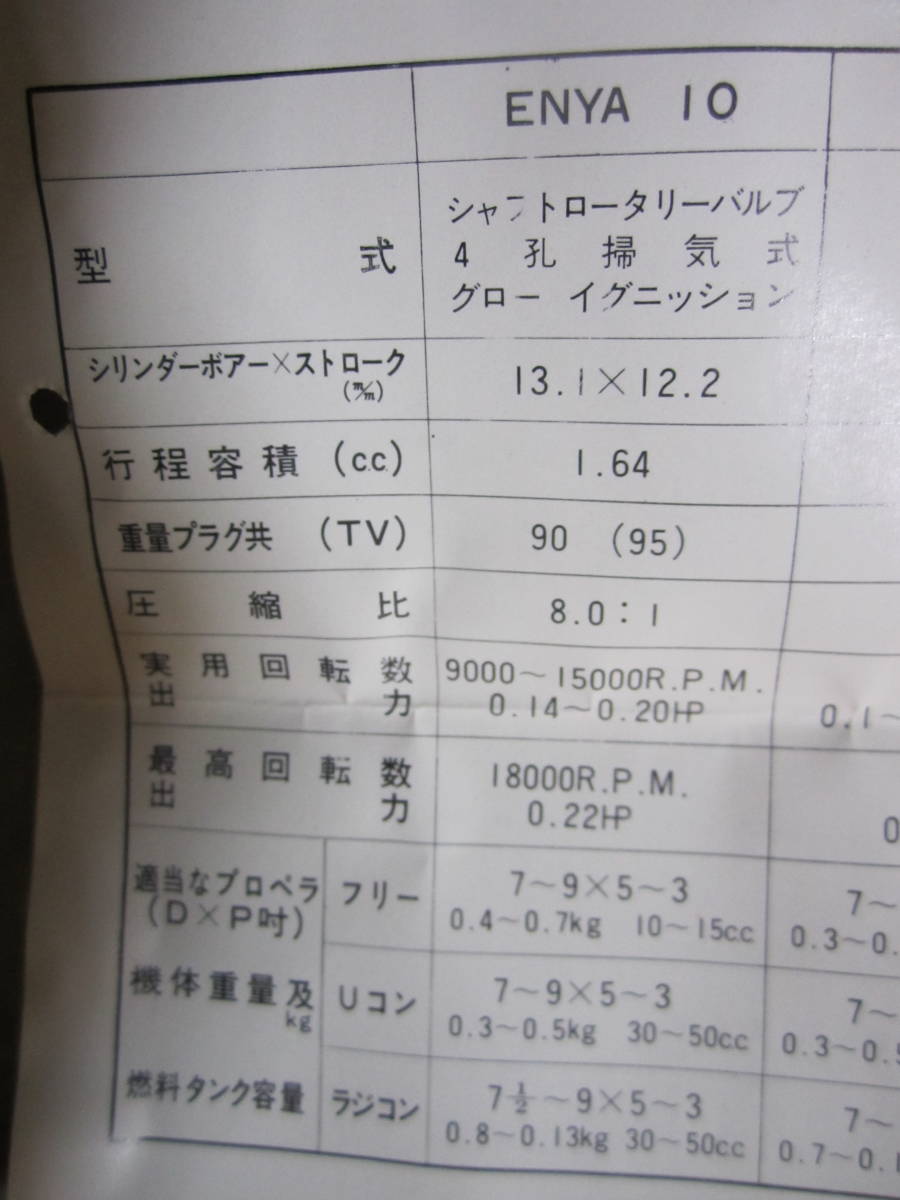 ENYA 10
型式
シャフトロータリーバルブ
4孔掃気式
グローイグニッション
シリンダーボアー×ストローク
(m/m)
13.1×12.2
行程容積 (c.c.)
1.64
重量プラグ共 (TV)
90 (95)
圧縮比
8.0:1
実用回転数
出力
9000~15000R.P.M.
0.14~0.20HP
0.1~
最高回転数
出力
18000R.P.M.
0.22HP
0
適当なプロペラ
(D×P吋)
機体重量及
kg
燃料タンク容量
フリー
7~9×5~3
0.4~0.7kg 10~15cc
7~
0.3~0.
Uコン
7~9×5~3
0.3~0.5kg 30~50cc
7~
0.3~0.5
ラジコン
7½~9×5~3
0.8~0.13kg 30~50cc
7~
0.7~0.1